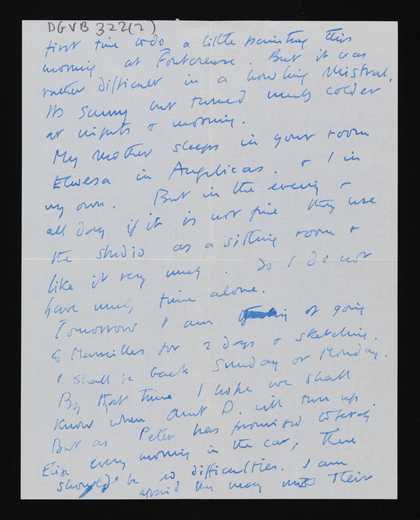 DGVB 322(7)
first time to do a little painting this
morning at Fontcreuse. But it was
rather difficult in a howling Mistral.
Its sunny but turned much colder
at nights & morning.
My mother sleeps in your room
in Angelicas. & I in
my own. But in the evening &
all day if it is not fine they use
the studio as a sitting room &
like it very much. So I do not
have much time alone.
Tomorrow I am of going
to Marseilles for 2 days & sketching.
I shall be back Sunday or Monday.
By that time I hope we shall
know when aunt D. will turn up.
But as Peter has promised to fetch
Elise every morning in the car, there
should be no difficulties. I am
afraid this may their